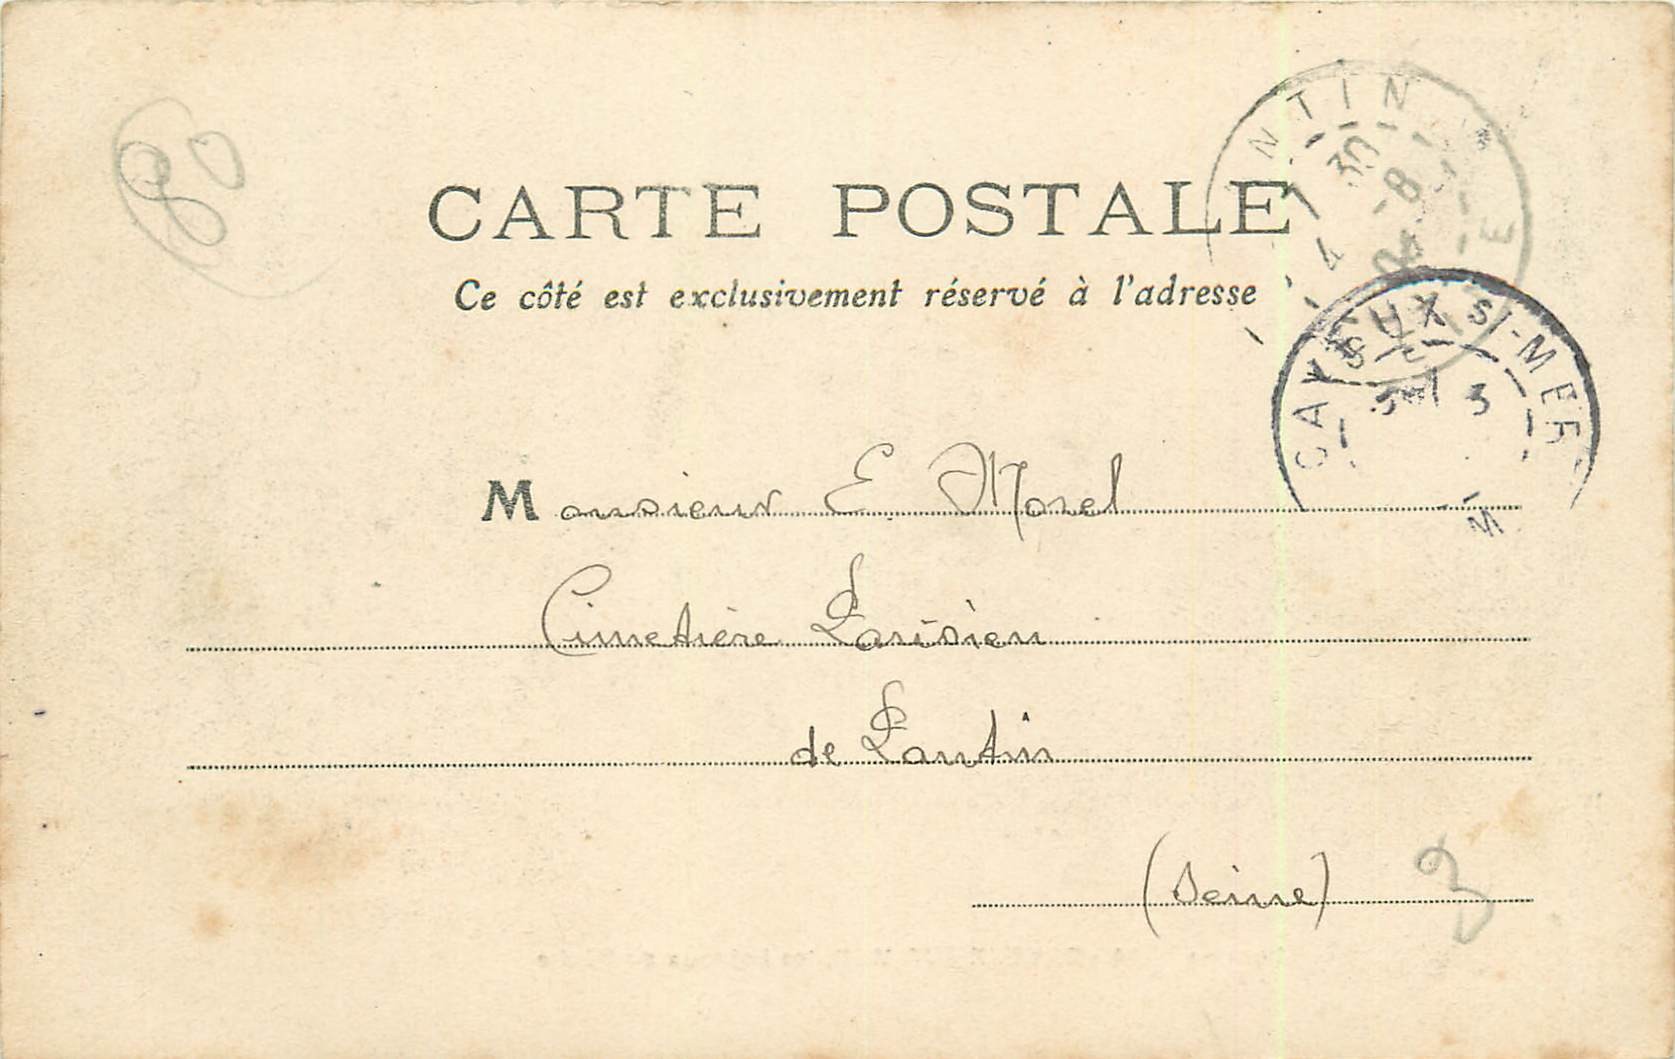 80
CARTE POSTALE
Ce côté est exclusivement réservé à l'adresse
NTIN
4 30
-8
04
E
CAYEUX S-MER
3
Monsieur E. Morel
Cimetière Parisien
de Pantin
(Seine)
3